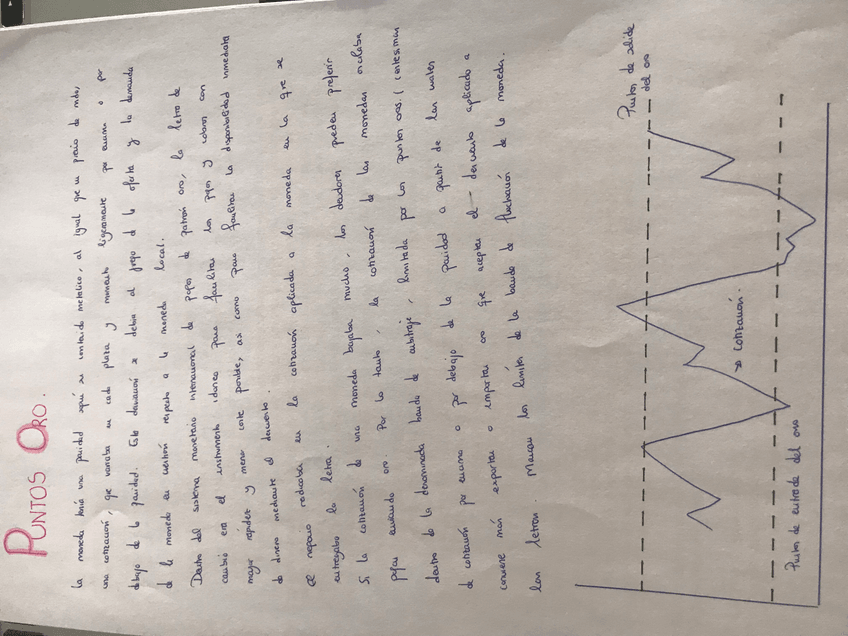 PUNTOS ORO.
La moneda tenía una paridad según su contenido metálico, al igual que un precio de mdo,
una cotización, que variaba en cada plaza y momento ligeramente por encima o por
debajo de la paridad. Esta desviación se debía al juego de la oferta y la demanda
de la moneda en cuestión respecto a la moneda local.
Dentro del sistema monetario internacional de pagos de patrón oro, la letra de
cambio era el instrumento idóneo para facilitar los pagos y cobros con
mayor rapidez y menor coste posible, así como para facilitar la disponibilidad inmediata
de dinero mediante el descuento.
El negocio radicaba en la cotización aplicada a la moneda en la que se
entregaba la letra.
Si la cotización de una moneda bajaba mucho, los deudores pueden preferir
pagar enviando oro. Por lo tanto, la cotización de las monedas oscilaba
dentro de la denominada banda de arbitraje, limitada por los puntos oros. (centésimas
de cotización por encima o por debajo de la paridad a partir de las cuales
conviene más exportar o importar oro que aceptar el descuento aplicado a
las letras. Marcan los límites de la banda de fluctuación de la moneda.
Puntos de salida
del oro
cotización.
Puntos de entrada del oro